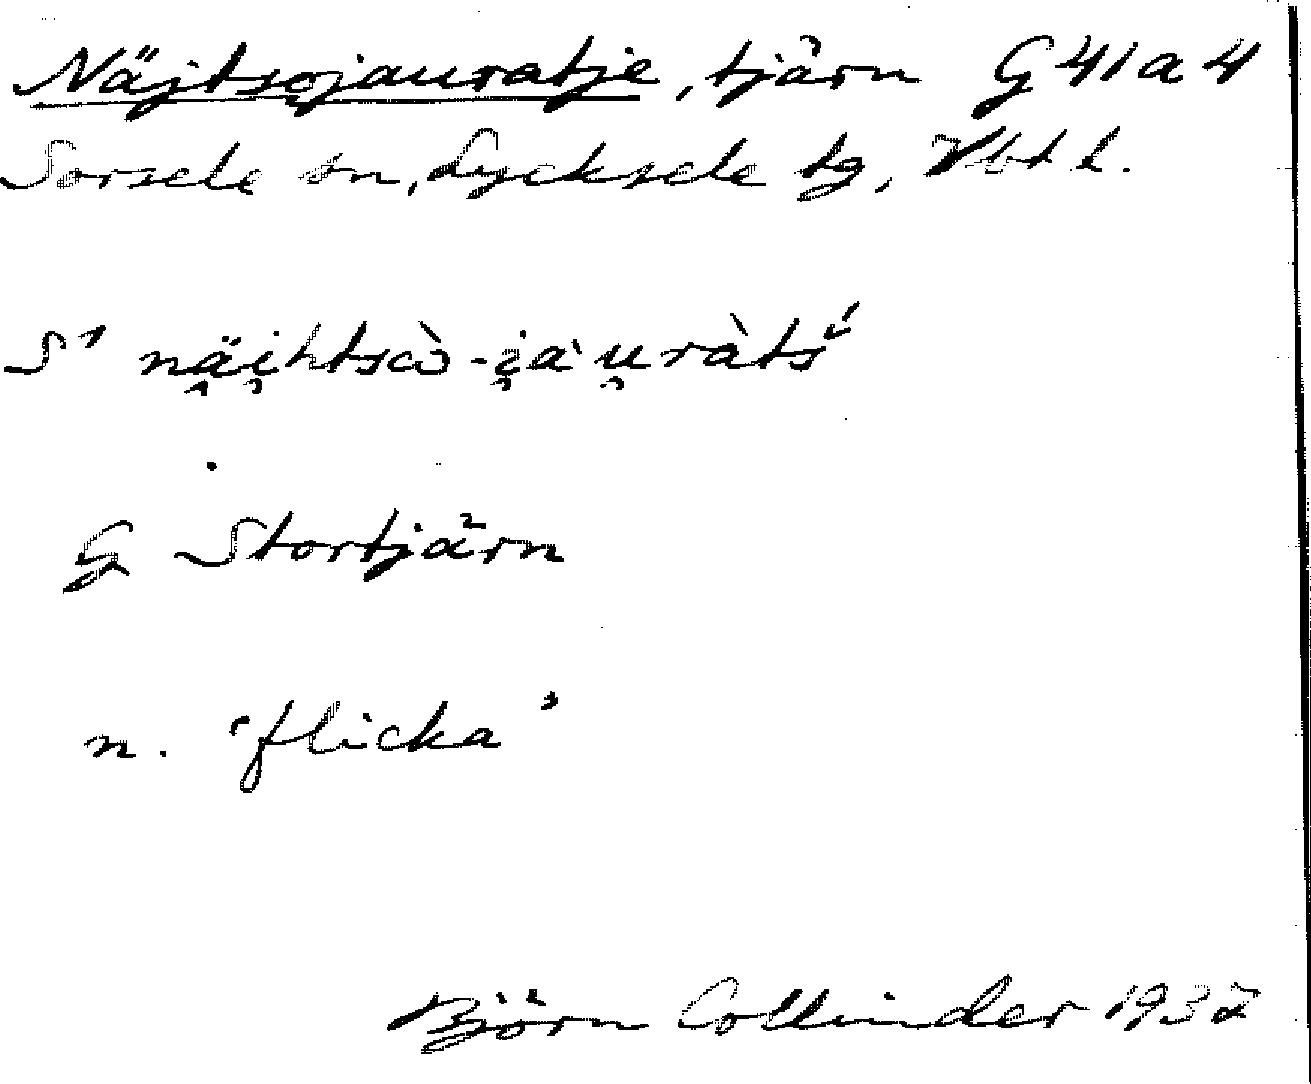 Näjtsojauratje, tjärn G 41 a 4
Sorsele sn, Lycksele tg, Vbt l.
S' nä̭i̯htsɷ̀-i̯a`u̯ràtś̌
G Stortjärn
n. 'flicka'
Björn Collinder 1937